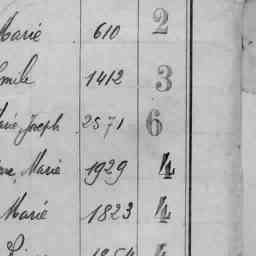 Marie 610 2
Emile 1412 3
Marie Joseph 2571 6
Marie 1929 4
Marie 1823 4
1854 4